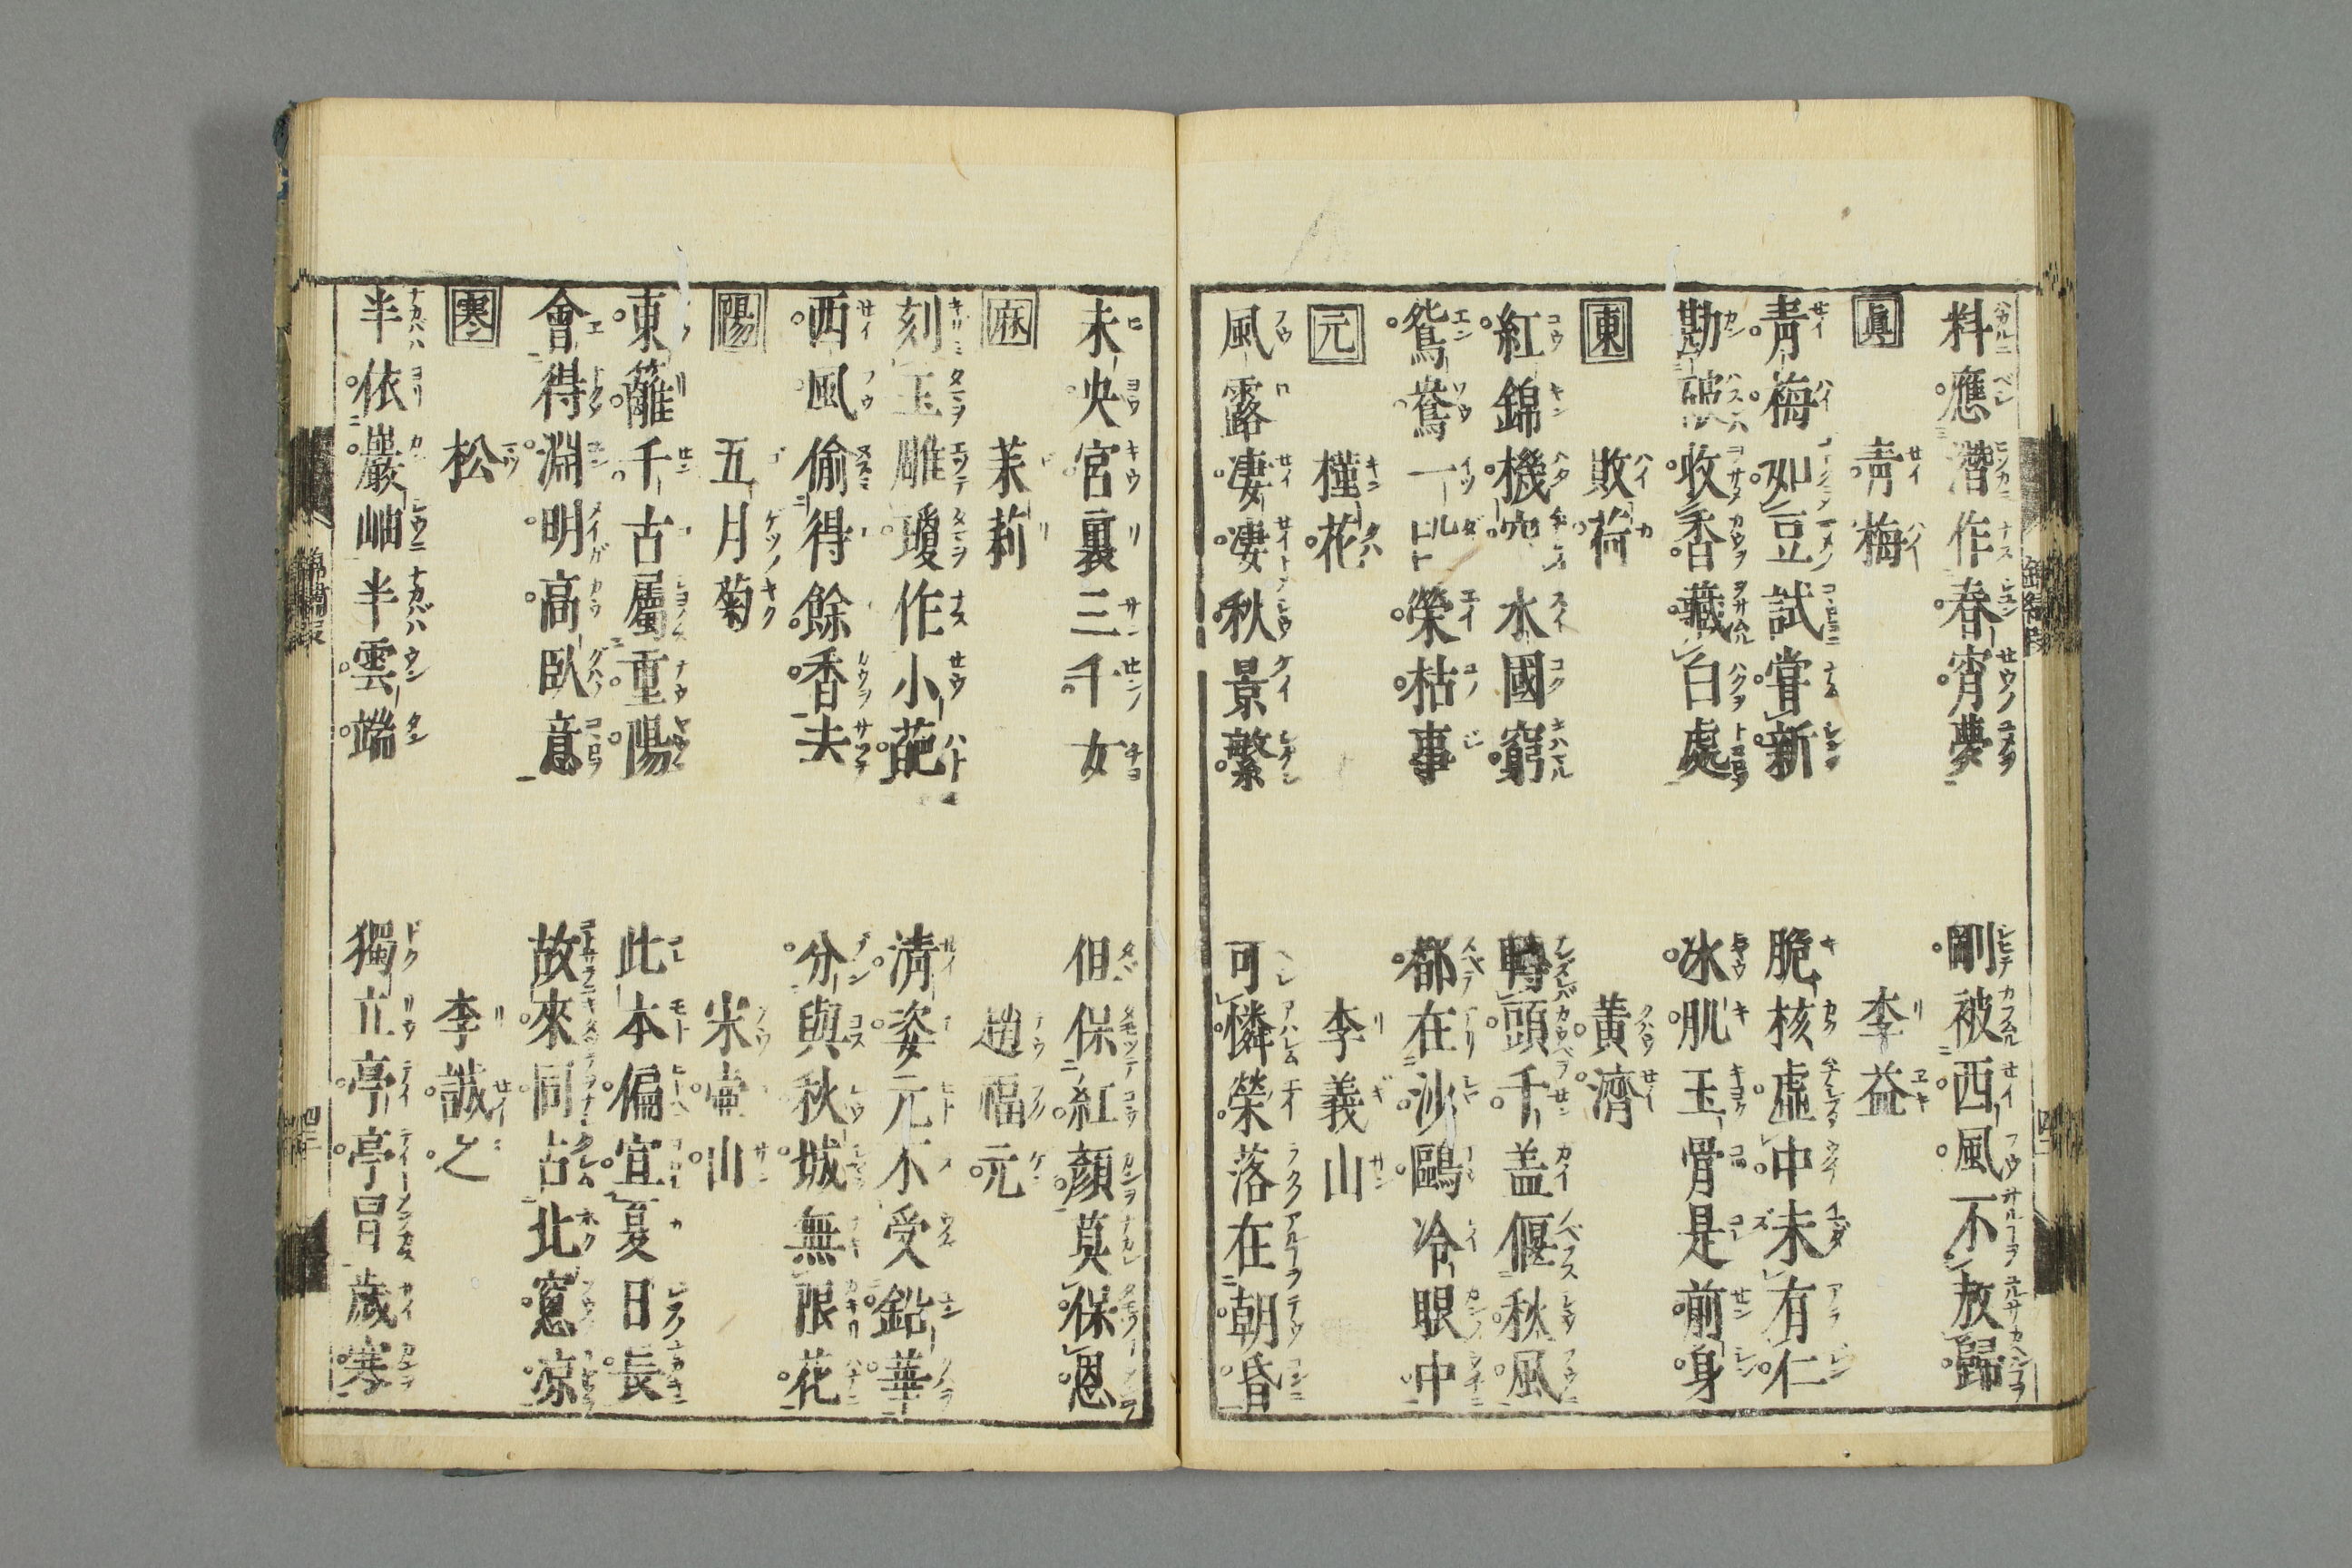 料應潛作春宵夢　剛被西風不放歸
眞　青梅　李益
青梅如豆試嘗新　脆核虛中未有仁
勘破收香藏白處　冰肌玉骨是前身
東　敗荷　黄濟
紅錦機空水國窮　轉頭千盖偃秋風
鴛鴦一比榮枯事　都在沙鷗冷眼中
元　槿花　李義山
風露凄凄秋景繁　可憐榮落在朝昏
未央宮裏三千女　但保紅顔莫保恩
麻　茉莉　趙福元
刻玉雕瓊作小葩　清姿元不受鉛華
西風偷得餘香去　分與秋城無限花
陽　五月菊　宋 山
東籬千古屬重陽　此本偏宜夏日長
會得淵明高臥意　故來同占北窓凉
寒　松　李誠之
半依巖岫半雲端　獨立亭亭冒歲寒